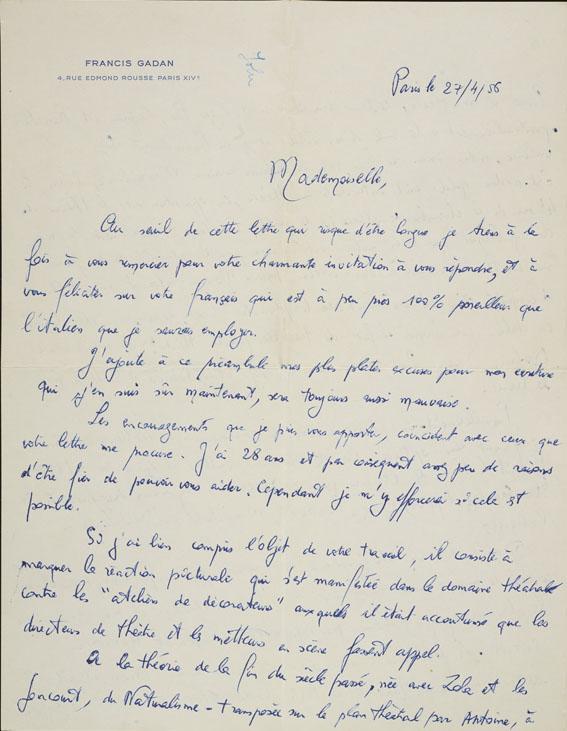 FRANCIS GADAN
4, RUE EDMOND ROUSSE PARIS XIVᵉ
Paris le 27/4/56
Mademoiselle,
Au seuil de cette lettre qui risque d'être longue je tiens à la
fois à vous remercier pour votre charmante invitation à vous répondre, et à
vous féliciter sur votre français qui est à peu près 100% meilleur que
l'italien que je saurais employer.
J'ajoute à ce préambule mes plus plates excuses pour mon écriture
qui j'en suis sûr maintenant, sera toujours aussi mauvaise.
Les encouragements que je puis vous apporter, coïncident avec ceux que
votre lettre me procure. J'ai 28 ans et par conséquent assez peu de raisons
d'être fier de pouvoir vous aider. Cependant je m'y efforcerai si cela est
possible.
Si j'ai bien compris l'objet de votre travail, il consiste à
marquer la réaction picturale qui s'est manifestée dans le domaine théâtral
contre les "ateliers de décorateurs" auxquels il était accoutumé que les
directeurs de théâtre et les metteurs en scène fassent appel.
A la théorie de la fin du siècle passé, née avec Zola et les
Goncourt, du Naturalisme - transposée sur le plan théâtral par Antoine, à